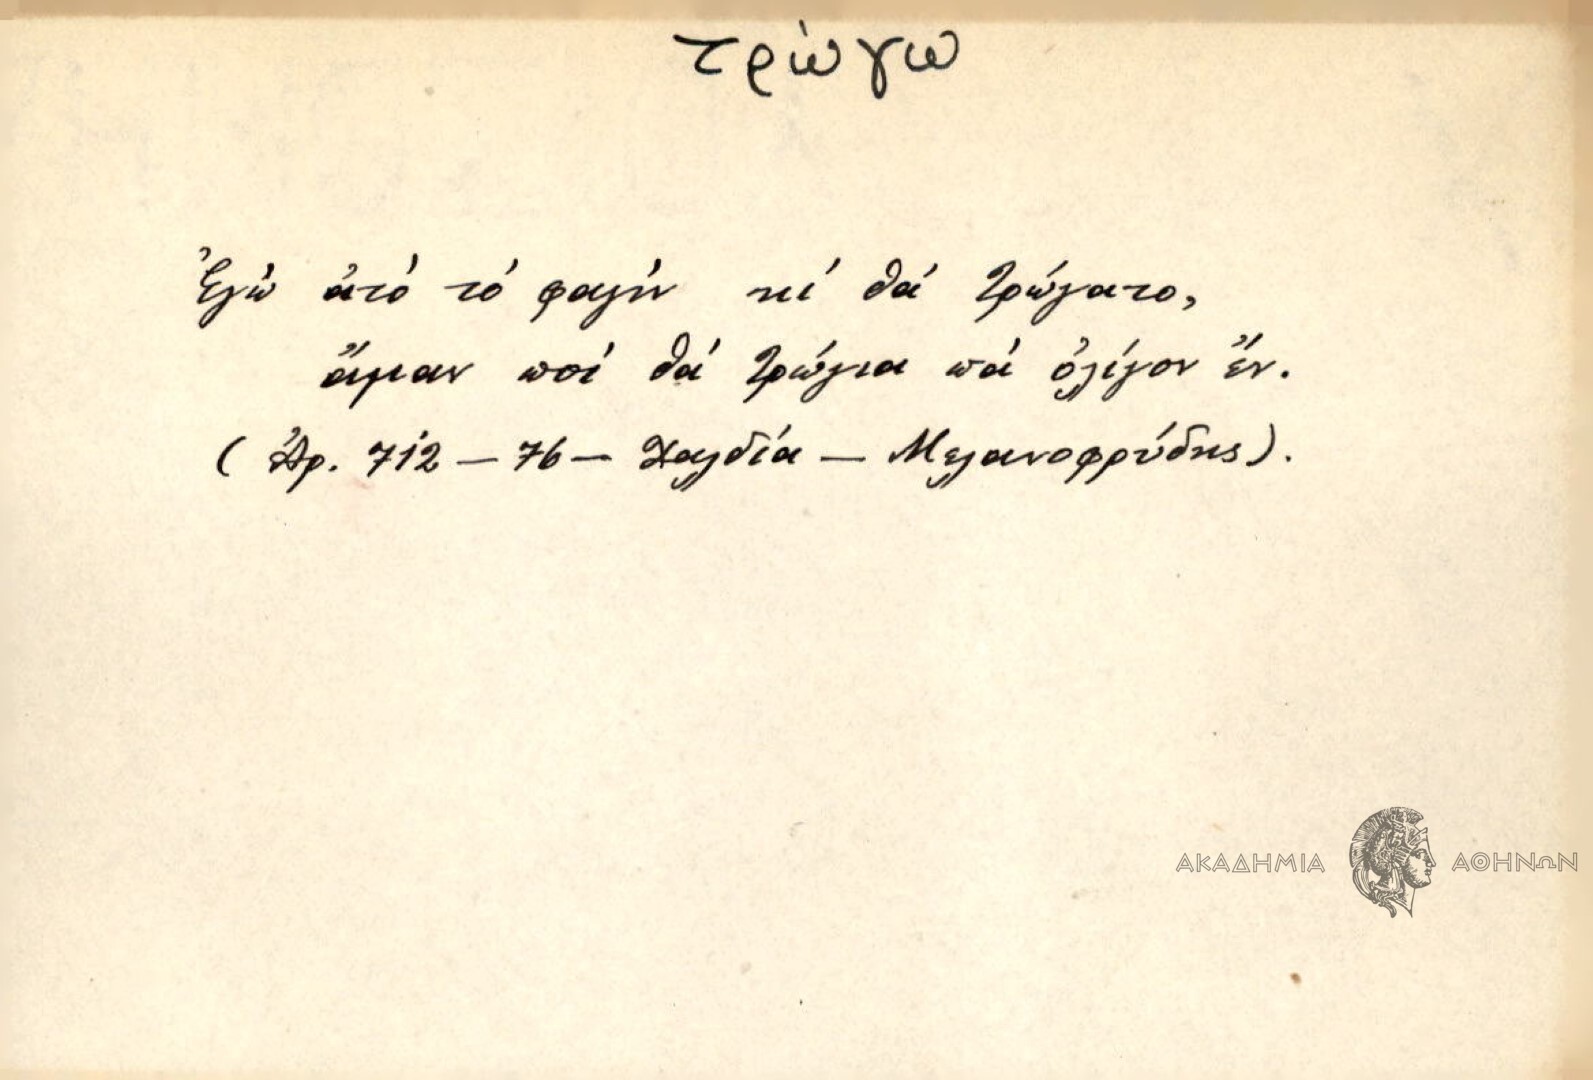 τρώγω
Ἐγὼ ἀτὸ τὸ φαγὶν κὶ θὰ τρώγατο,
ἄμαν ποὶ θὰ τρώγνα πὰ ὀλίγον ἔν.
(Ἀρ. 712 — 76 — Χαλδία — Μελανοφρύδης).
ΑΚΑΔΗΜΙΑ ΑΘΗΝΩΝ